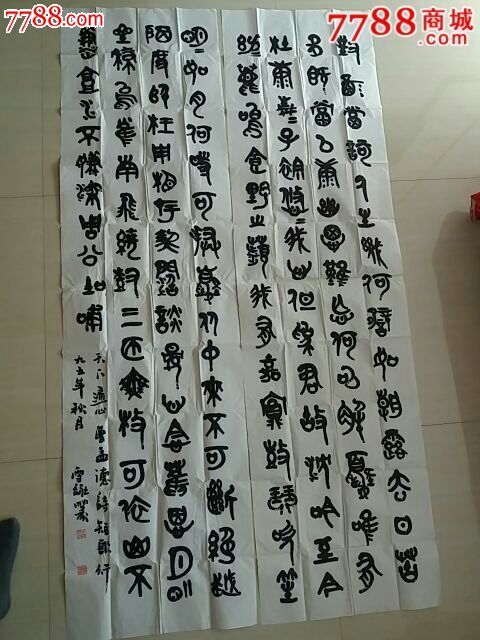 7788.com
7788商城
7788.com
對酒當歌人生幾何譬如朝露去日苦
多慨當以慷幽思難忘何以解憂唯有
杜康青子衿悠我心但為君故沈吟至今
鹿鳴食野之蘋我有嘉賓鼓瑟吹笙
明如月何時可掇憂從中來不可斷絕越
陌度阡枉用相存契闊談讌心念舊恩月明
星稀烏鵲南飛繞樹三匝枝可依山不
高水不深周公吐哺
天下歸心曹孟德詩短歌行
九五年秋月